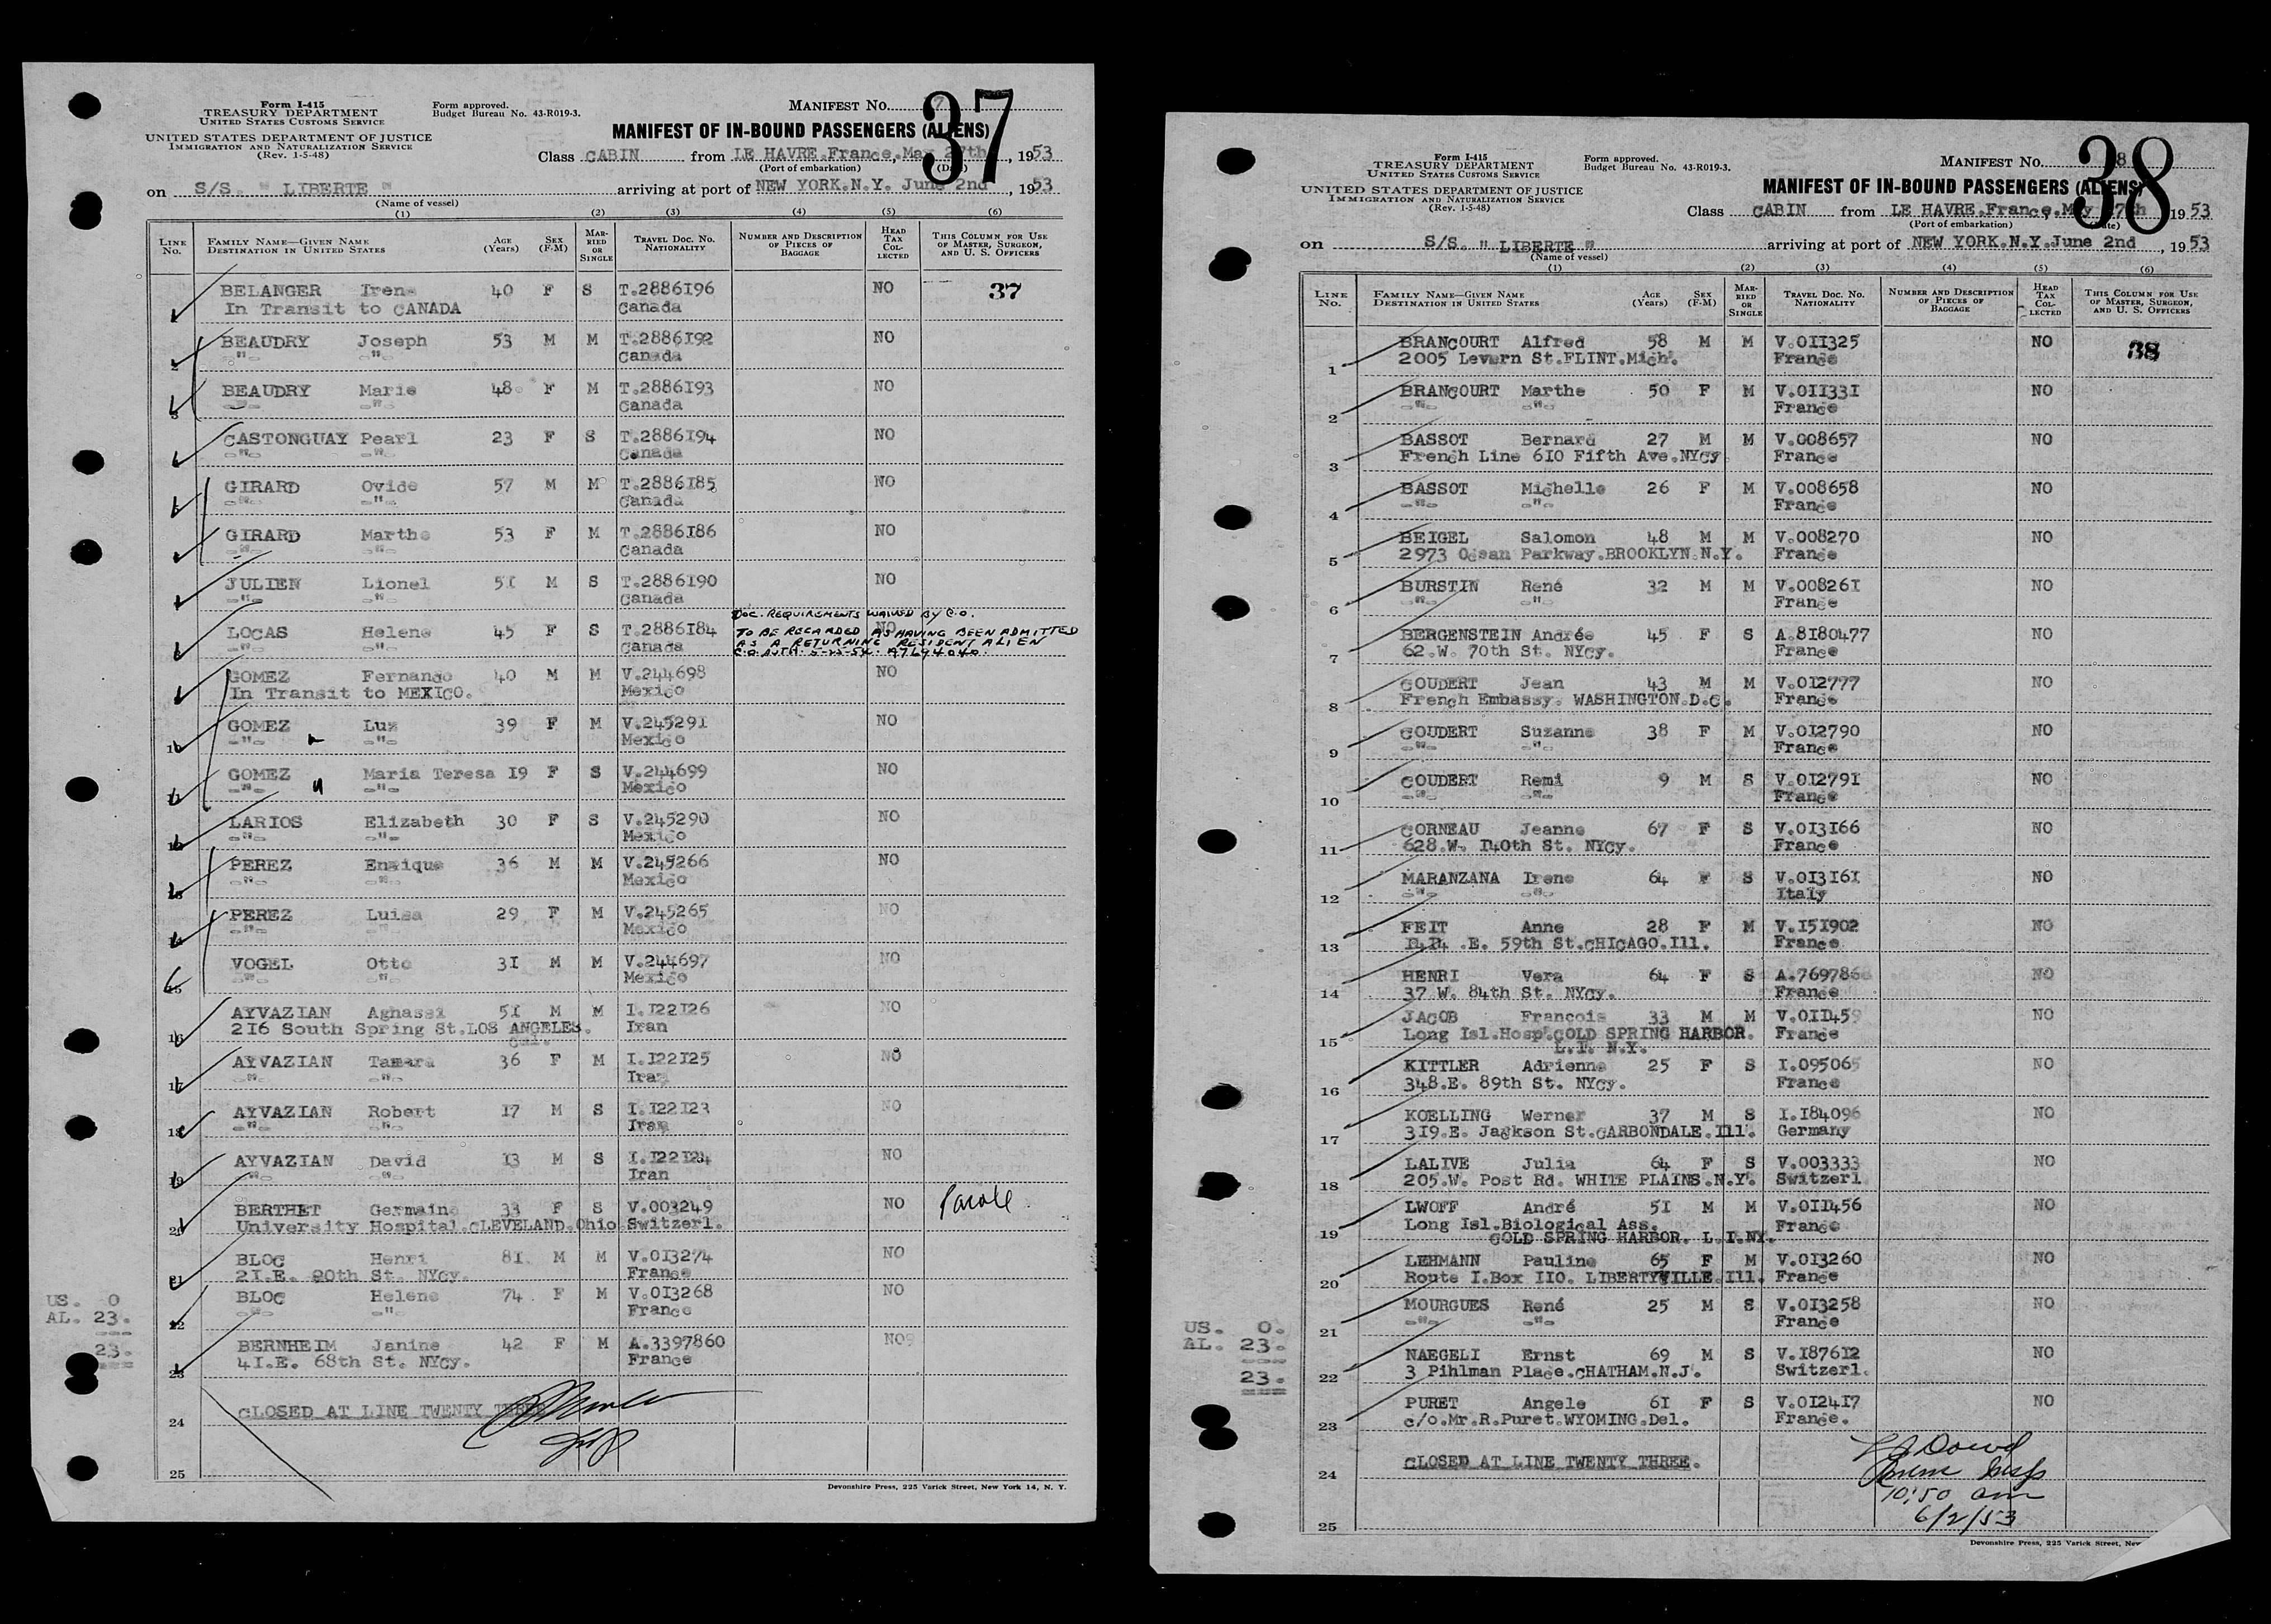 Form I-415
TREASURY DEPARTMENT
UNITED STATES CUSTOMS SERVICE
UNITED STATES DEPARTMENT OF JUSTICE
IMMIGRATION AND NATURALIZATION SERVICE
(Rev. 1-5-48)
Form approved.
Budget Bureau No. 43-R019-3.
MANIFEST No. 37
MANIFEST OF IN-BOUND PASSENGERS (ALIENS)
Class CABIN from LE HAVRE.France.May 27th, 1953
(Port of embarkation) (Date)
on S/S. " LIBERTE " arriving at port of NEW YORK.N.Y. June 2nd, 1953
(Name of vessel)
(1) (2) (3) (4) (5) (6)
LINE No. FAMILY NAME—GIVEN NAME DESTINATION IN UNITED STATES AGE (Years) SEX (F-M) MARRIED OR SINGLE TRAVEL DOC. NO. NATIONALITY NUMBER AND DESCRIPTION OF PIECES OF BAGGAGE HEAD TAX COLLECTED THIS COLUMN FOR USE OF MASTER, SURGEON, AND U. S. OFFICERS
BELANGER Irene 40 F S T.2886196 NO 37
In Transit to CANADA Canada
BEAUDRY Joseph 53 M M T.2886192 NO
-"- -"- Canada
3 BEAUDRY Marie 48 F M T.2886193 NO
-"- -"- Canada
CASTONGUAY Pearl 23 F S T.2886194 NO
-"- -"- Canada
GIRARD Ovide 57 M M T.2886185 NO
-"- -"- Canada
GIRARD Marthe 53 F M T.2886186 NO
-"- -"- Canada
JULIEN Lionel 51 M S T.2886190 NO
-"- -"- Canada
DOC. REQUIREMENTS WAIVED BY C.O.
LOCAS Helene 45 F S T.2886184 NO
-"- -"- Canada
TO BE REGARDED AS HAVING BEEN ADMITTED
AS A RETURNING RESIDENT ALIEN
C.O. AUTH.
GOMEZ Fernando 40 M M V.244698 NO
In Transit to MEXICO. Mexico
10 GOMEZ Luz 39 F M V.245291 NO
-"- -"- Mexico
11 GOMEZ Maria Teresa 19 F S V.244699 NO
-"- -"- Mexico
12 LARIOS Elizabeth 30 F S V.245290 NO
-"- -"- Mexico
13 PEREZ Enrique 36 M M V.245266 NO
-"- -"- Mexico
14 PEREZ Luisa 29 F M V.245265 NO
-"- -"- Mexico
15 VOGEL Otto 31 M M V.244697 NO
-"- -"- Mexico
16 AYVAZIAN Aghassi 51 M M I.122126 NO
216 South Spring St.LOS ANGELES. Iran
Cal.
17 AYVAZIAN Tamara 36 F M I.122125 NO
-"- -"- Iran
18 AYVAZIAN Robert 17 M S I.122123 NO
-"- -"- Iran
19 AYVAZIAN David 13 M S I.122124 NO
-"- -"- Iran
20 BERTHET Germaine 33 F S V.003249 NO Parole
University Hospital.CLEVELAND.Ohio Switzerl.
21 BLOC Henri 81 M M V.013274 NO
21.E. 90th St. NYCy. France
22 BLOC Helene 74 F M V.013268 NO
-"- -"- France
23 BERNHEIM Janine 42 F M A.3397860 NO
41.E. 68th St. NYCy. France
US. 0
AL. 23.
23.
24 CLOSED AT LINE TWENTY THREE
25
Devonshire Press, 225 Varick Street, New York 14, N. Y.
Form I-415
TREASURY DEPARTMENT
UNITED STATES CUSTOMS SERVICE
UNITED STATES DEPARTMENT OF JUSTICE
IMMIGRATION AND NATURALIZATION SERVICE
(Rev. 1-5-48)
Form approved.
Budget Bureau No. 43-R019-3.
MANIFEST No. 8 38
MANIFEST OF IN-BOUND PASSENGERS (ALIENS)
Class CABIN from LE HAVRE.France.May 27th 1953
(Port of embarkation) (Date)
on S/S. " LIBERTE " arriving at port of NEW YORK.N.Y.June 2nd, 1953
(Name of vessel)
(1) (2) (3) (4) (5) (6)
LINE No. FAMILY NAME—GIVEN NAME DESTINATION IN UNITED STATES AGE (Years) SEX (F-M) MARRIED OR SINGLE TRAVEL DOC. NO. NATIONALITY NUMBER AND DESCRIPTION OF PIECES OF BAGGAGE HEAD TAX COLLECTED THIS COLUMN FOR USE OF MASTER, SURGEON, AND U. S. OFFICERS
1 BRANCOURT Alfred 58 M M V.011325 NO 38
2005 Levern St.FLINT.Mich. France
2 BRANCOURT Marthe 50 F M V.011331 NO
-"- -"- France
3 BASSOT Bernard 27 M M V.008657 NO
French Line 610 Fifth Ave.NYCy France
4 BASSOT Michelle 26 F M V.008658 NO
-"- -"- France
5 BEIGEL Salomon 48 M M V.008270 NO
2973 Ocean Parkway.BROOKLYN.N.Y. France
6 BURSTIN René 32 M M V.008261 NO
-"- -"- France
7 BERGENSTEIN Andrée 45 F S A.8180477 NO
62.W. 70th St. NYCy. France
8 COUDERT Jean 43 M M V.012777 NO
French Embassy. WASHINGTON.D.C. France
9 COUDERT Suzanne 38 F M V.012790 NO
-"- -"- France
10 COUDERT Remi 9 M S V.012791 NO
-"- -"- France
11 CORNEAU Jeanne 67 F S V.013166 NO
628.W. 140th St. NYCy. France
12 MARANZANA Irene 64 F S V.013161 NO
-"- -"- Italy
13 FEIT Anne 28 F M V.151902 NO
1414 .E. 59th St.CHICAGO.Ill. France
14 HENRI Vera 64 F S A.769786 NO
37 W. 84th St. NYCy. France
15 JACOB Francois 33 M M V.011459 NO
Long Isl.Hosp.COLD SPRING HARBOR. France
L.I. N.Y.
16 KITTLER Adrienne 25 F S I.095065 NO
348.E. 89th St. NYCy. France
17 KOELLING Werner 37 M S I.184096 NO
319.E. Jackson St.CARBONDALE.Ill. Germany
18 LALIVE Julia 64 F S V.003333 NO
205.W. Post Rd. WHITE PLAINS.N.Y. Switzerl
19 LWOFF André 51 M M V.011456 NO
Long Isl.Biological Ass. France
COLD SPRING HARBOR. L.I.NY.
20 LEHMANN Pauline 65 F M V.013260 NO
Route I.Box 110. LIBERTYVILLE.Ill. France
21 MOURGUES René 25 M S V.013258 NO
-"- -"- France
22 NAEGELI Ernst 69 M S V.187612 NO
3 Pihlman Place.CHATHAM.N.J. Switzerl.
23 PURET Angele 61 F S V.012417 NO
c/o.Mr.R.Puret.WYOMING.Del. France.
US. 0.
AL. 23.
23.
24 CLOSED AT LINE TWENTY THREE.
10:50 am
6/2/53
25
Devonshire Press, 225 Varick Street, New